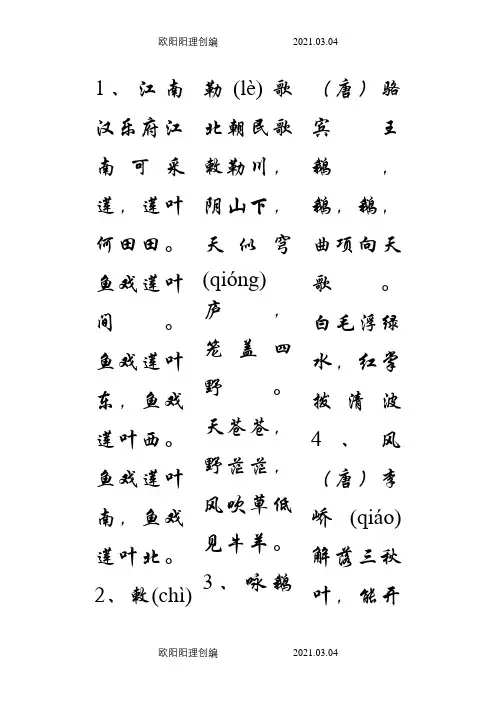 欧阳阳理创编 2021.03.04
1、江南
汉乐府江
南可采
莲，莲叶
何田田。
鱼戏莲叶
间。
鱼戏莲叶
东，鱼戏
莲叶西。
鱼戏莲叶
南，鱼戏
莲叶北。
2、敕(chì)
勒(lè)歌
北朝民歌
敕勒川，
阴山下，
天似穹
(qióng)
庐，
笼盖四
野。
天苍苍，
野茫茫，
风吹草低
见牛羊。
3、咏鹅
（唐）骆
宾王
鹅，
鹅，鹅，
曲项向天
歌。
白毛浮绿
水，红掌
拨清波
4、风
（唐）李
峤(qiáo)
解落三秋
叶，能开
欧阳阳理创编 2021.03.04